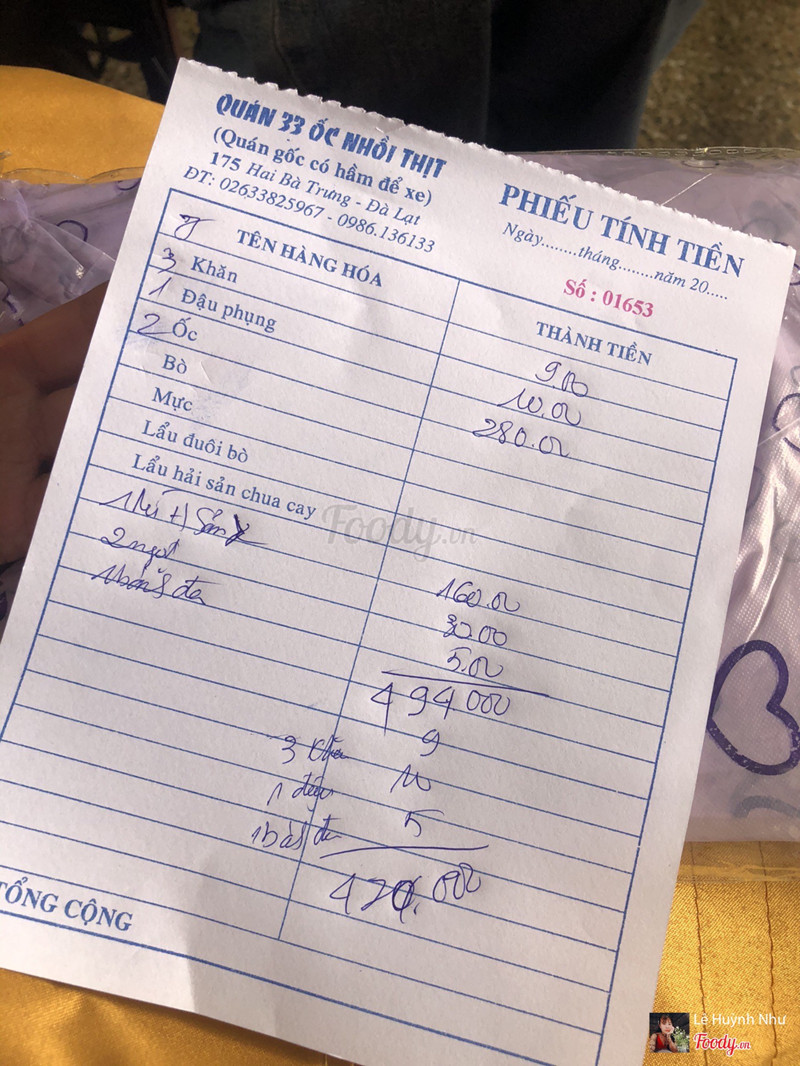 QUÁN 33 ỐC NHỒI THỊT
(Quán gốc có hầm để xe)
175 Hai Bà Trưng - Đà Lạt
ĐT: 02633825967 - 0986.136133
PHIẾU TÍNH TIỀN
Ngày........tháng........năm 20.....
Số : 01653
7 TÊN HÀNG HÓA THÀNH TIỀN
3 Khăn 900
1 Đậu phụng 10.00
2 Ốc 280.00
Bò
Mực
Lẩu đuôi bò
Lẩu hải sản chua cay
160.00
2 ngọt 30.00
1 bàn đá 5.00
494000
3 khăn 9
1 đậu 10
1 bàn đá 5
420.000
TỔNG CỘNG
Foody.vn
Lê Huỳnh Như
Foody.vn